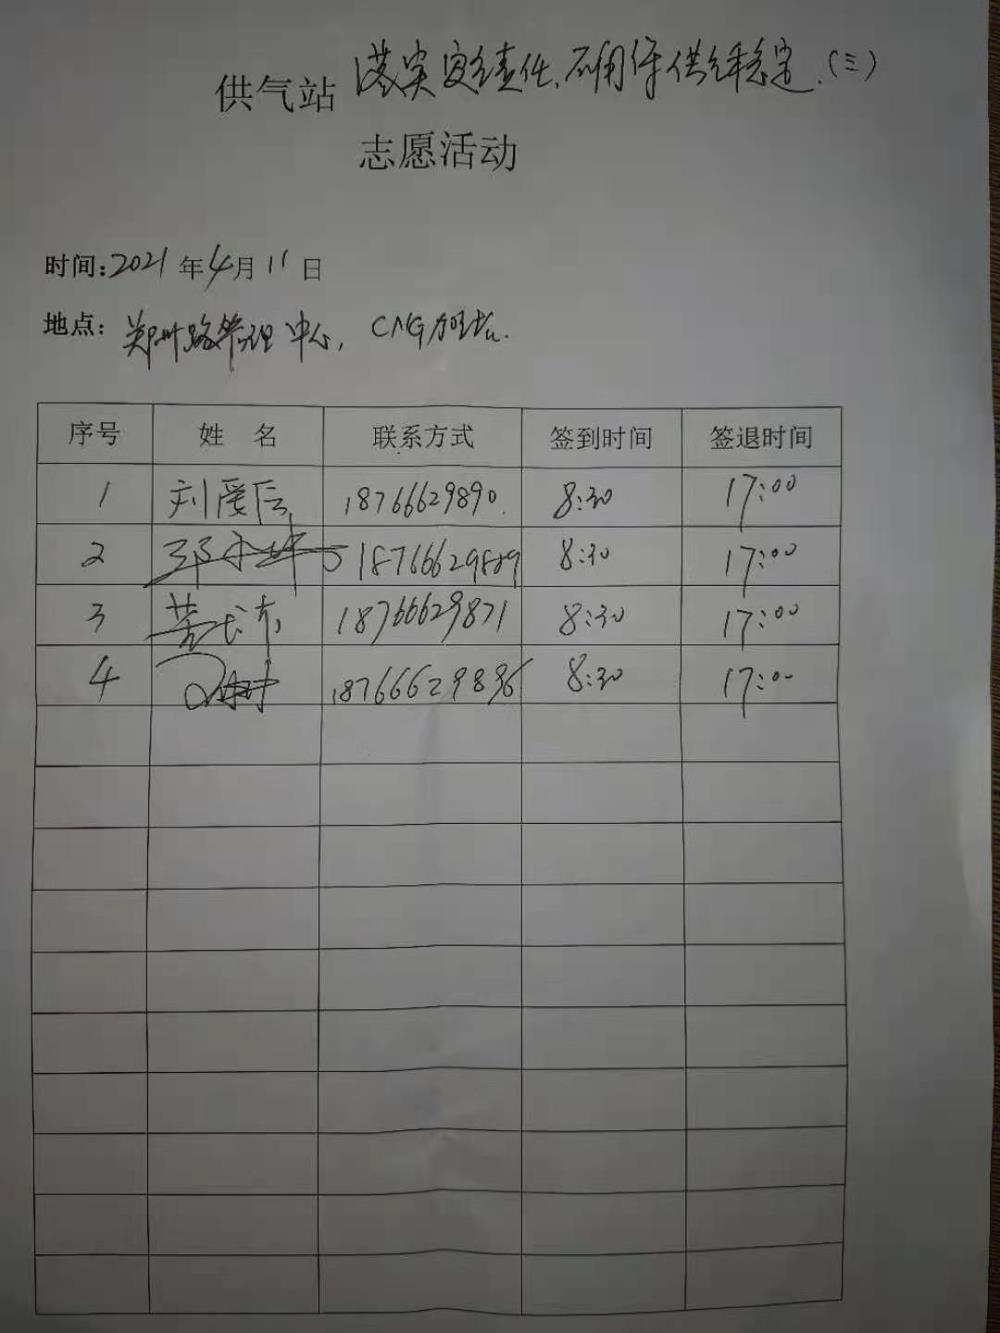 供气站 落实安全责任、确保供气稳定.(三)
志愿活动
时间:2021年4月11日
地点: 郑州路管理中心, CNG加气站.
序号 姓名 联系方式 签到时间 签退时间
1 刘爱辰 18766629890. 8:30 17:00
2 18766629889 8:30 17:00
3 18766629871 8:30 17:00
4 18766629896 8:30 17:00